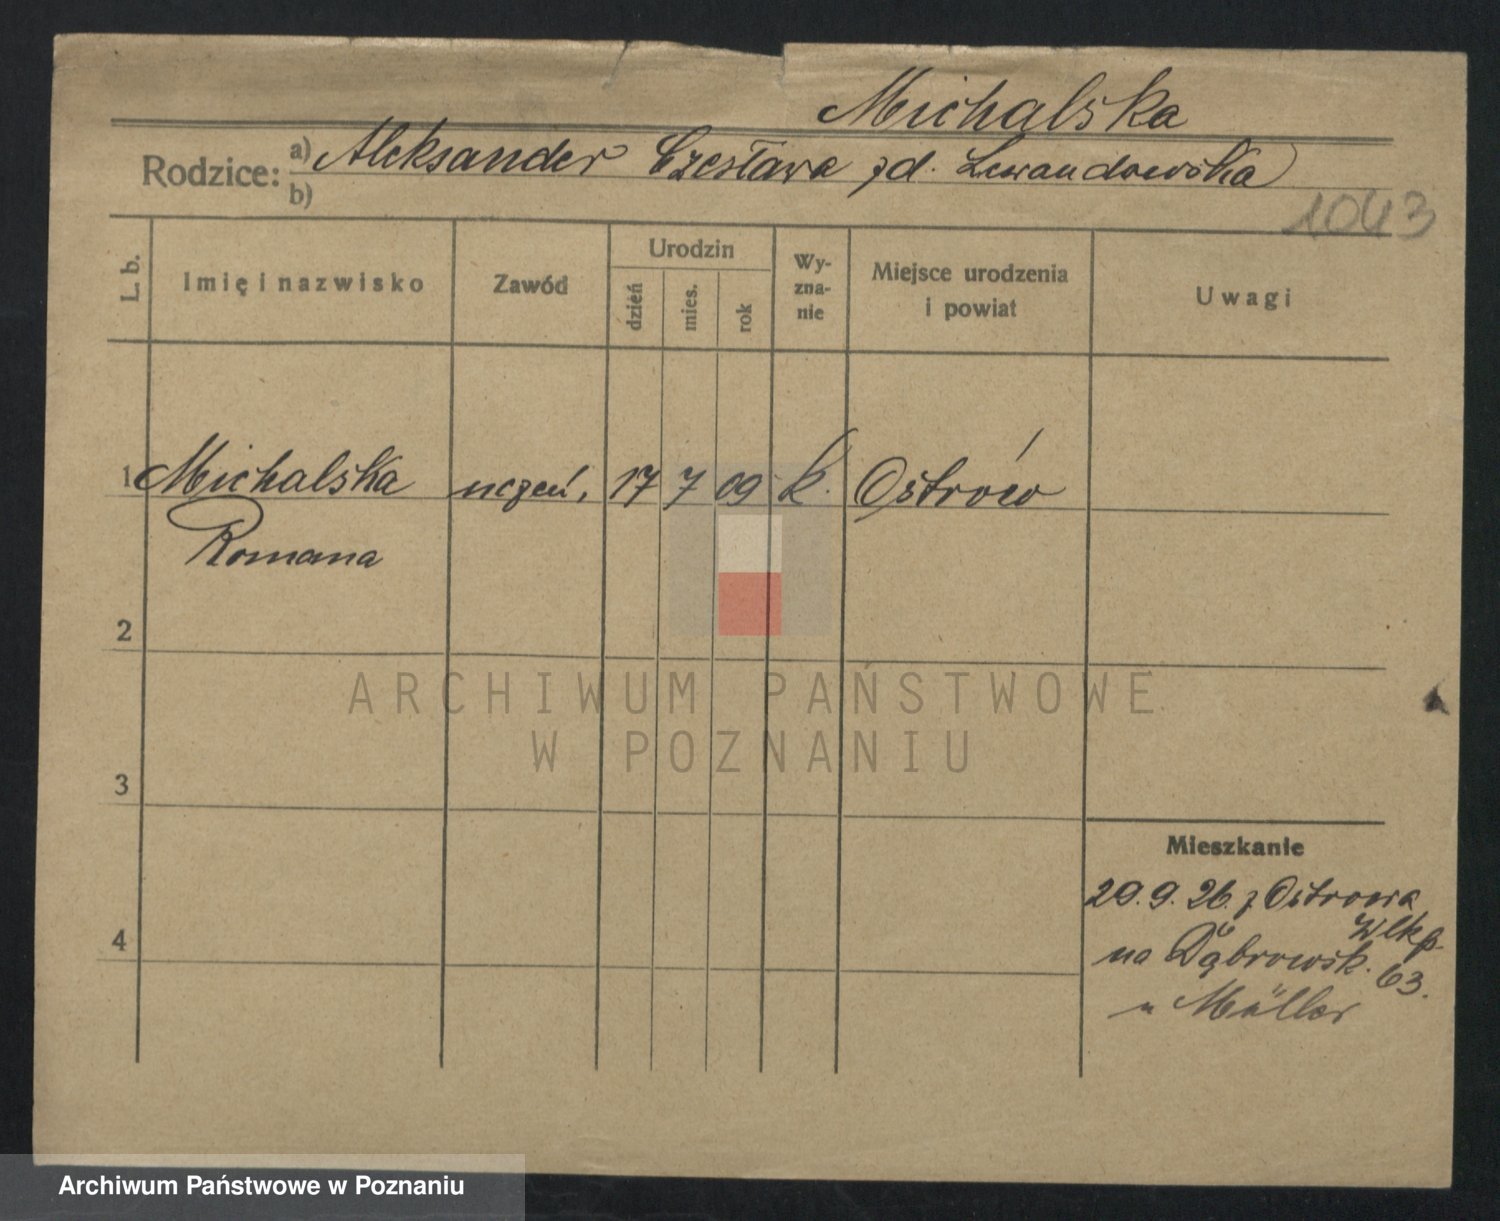 Michalska
Rodzice: a) Aleksander Czesława zd. Lewandowska
b)
1043
L. b. Imię i nazwisko Zawód Urodzin dzień mies. rok Wyznanie Miejsce urodzenia i powiat Uwagi
1 Michalska uczeń, 17 7 09 k. Ostrów
Romana
2
3
4
Mieszkanie
29.9.26. z Ostrowa
Wlkp.
na Dąbrowsk. 63.
u Müller
ARCHIWUM PAŃSTWOWE
W POZNANIU
Archiwum Państwowe w Poznaniu